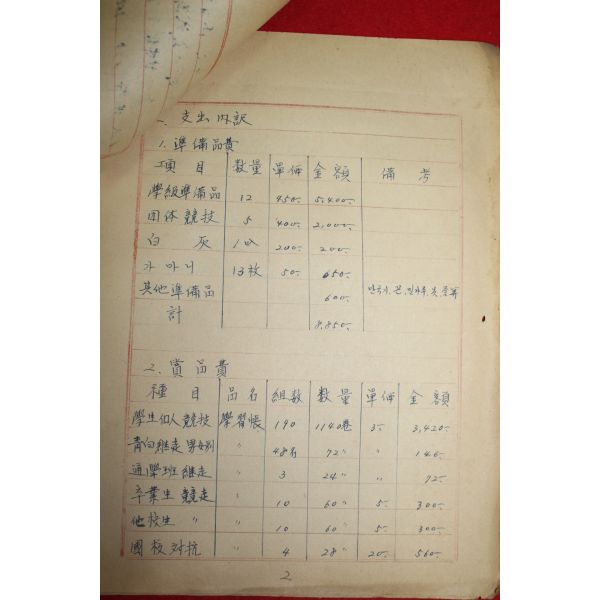 支出内訳
1. 準備品費
項目 数量 單価 金額 備考
學級準備品 12 450- 5,400-
団体競技 5 400- 2,000-
白灰 1叺 200- 200-
가마니 13枚 50- 650-
其他準備品 600- 만국기, 끈,
計 8,850-
2. 賞品費
種目 品名 組数 数量 單価 金額
學生個人競技 學習帳 190 1140巻 3- 3,420-
青白継走 男女別 〃 48名 72〃 〃 146-
通學班継走 〃 3 24〃 〃 72-
卒業生競走 〃 10 60〃 5- 300-
他校生 〃 〃 10 60〃 5- 300-
國校対抗 〃 4 28〃 20- 560-
2